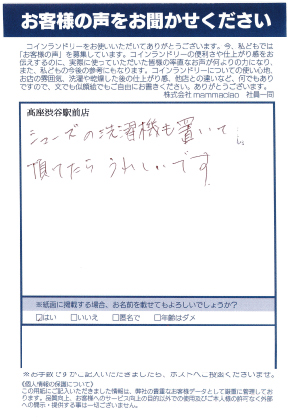 お客様の声をお聞かせください
コインランドリーをお使いいただいてありがとうございます。今、私どもでは
「お客様の声」を募集しています。コインランドリーの便利さや仕上がり感をお
伝えするのに、実際に使っていただいた皆様の率直なお声が何よりの力になり、
また、私どもの今後の参考にもなります。コインランドリーについての使い心地、
お店の雰囲気、洗濯や乾燥した後の仕上がり感、他店との違いなど、何でもあり
ですので、文でも似顔絵でもご自由にお書きください。ありがとうございます。
株式会社mammaciao 社員一同
高座渋谷駅前店
シューズの洗濯機も置いて
頂てたら うれしいです
※紙面に掲載する場合、お名前を載せてもよろしいでしょうか?
☑はい □いいえ □匿名で □年齢はダメ
※お手数ですがご記入いただきましたら、ポストへご投函くださいませ。
《個人情報の保護について》
この用紙にご記入いただきました情報は、弊社の貴重なお客様データとして厳重に管理してお
ります。品質向上、お客様へのサービス向上の目的以外での使用及びご本人様の許可なく外部
への開示・提供する事は一切ございません。